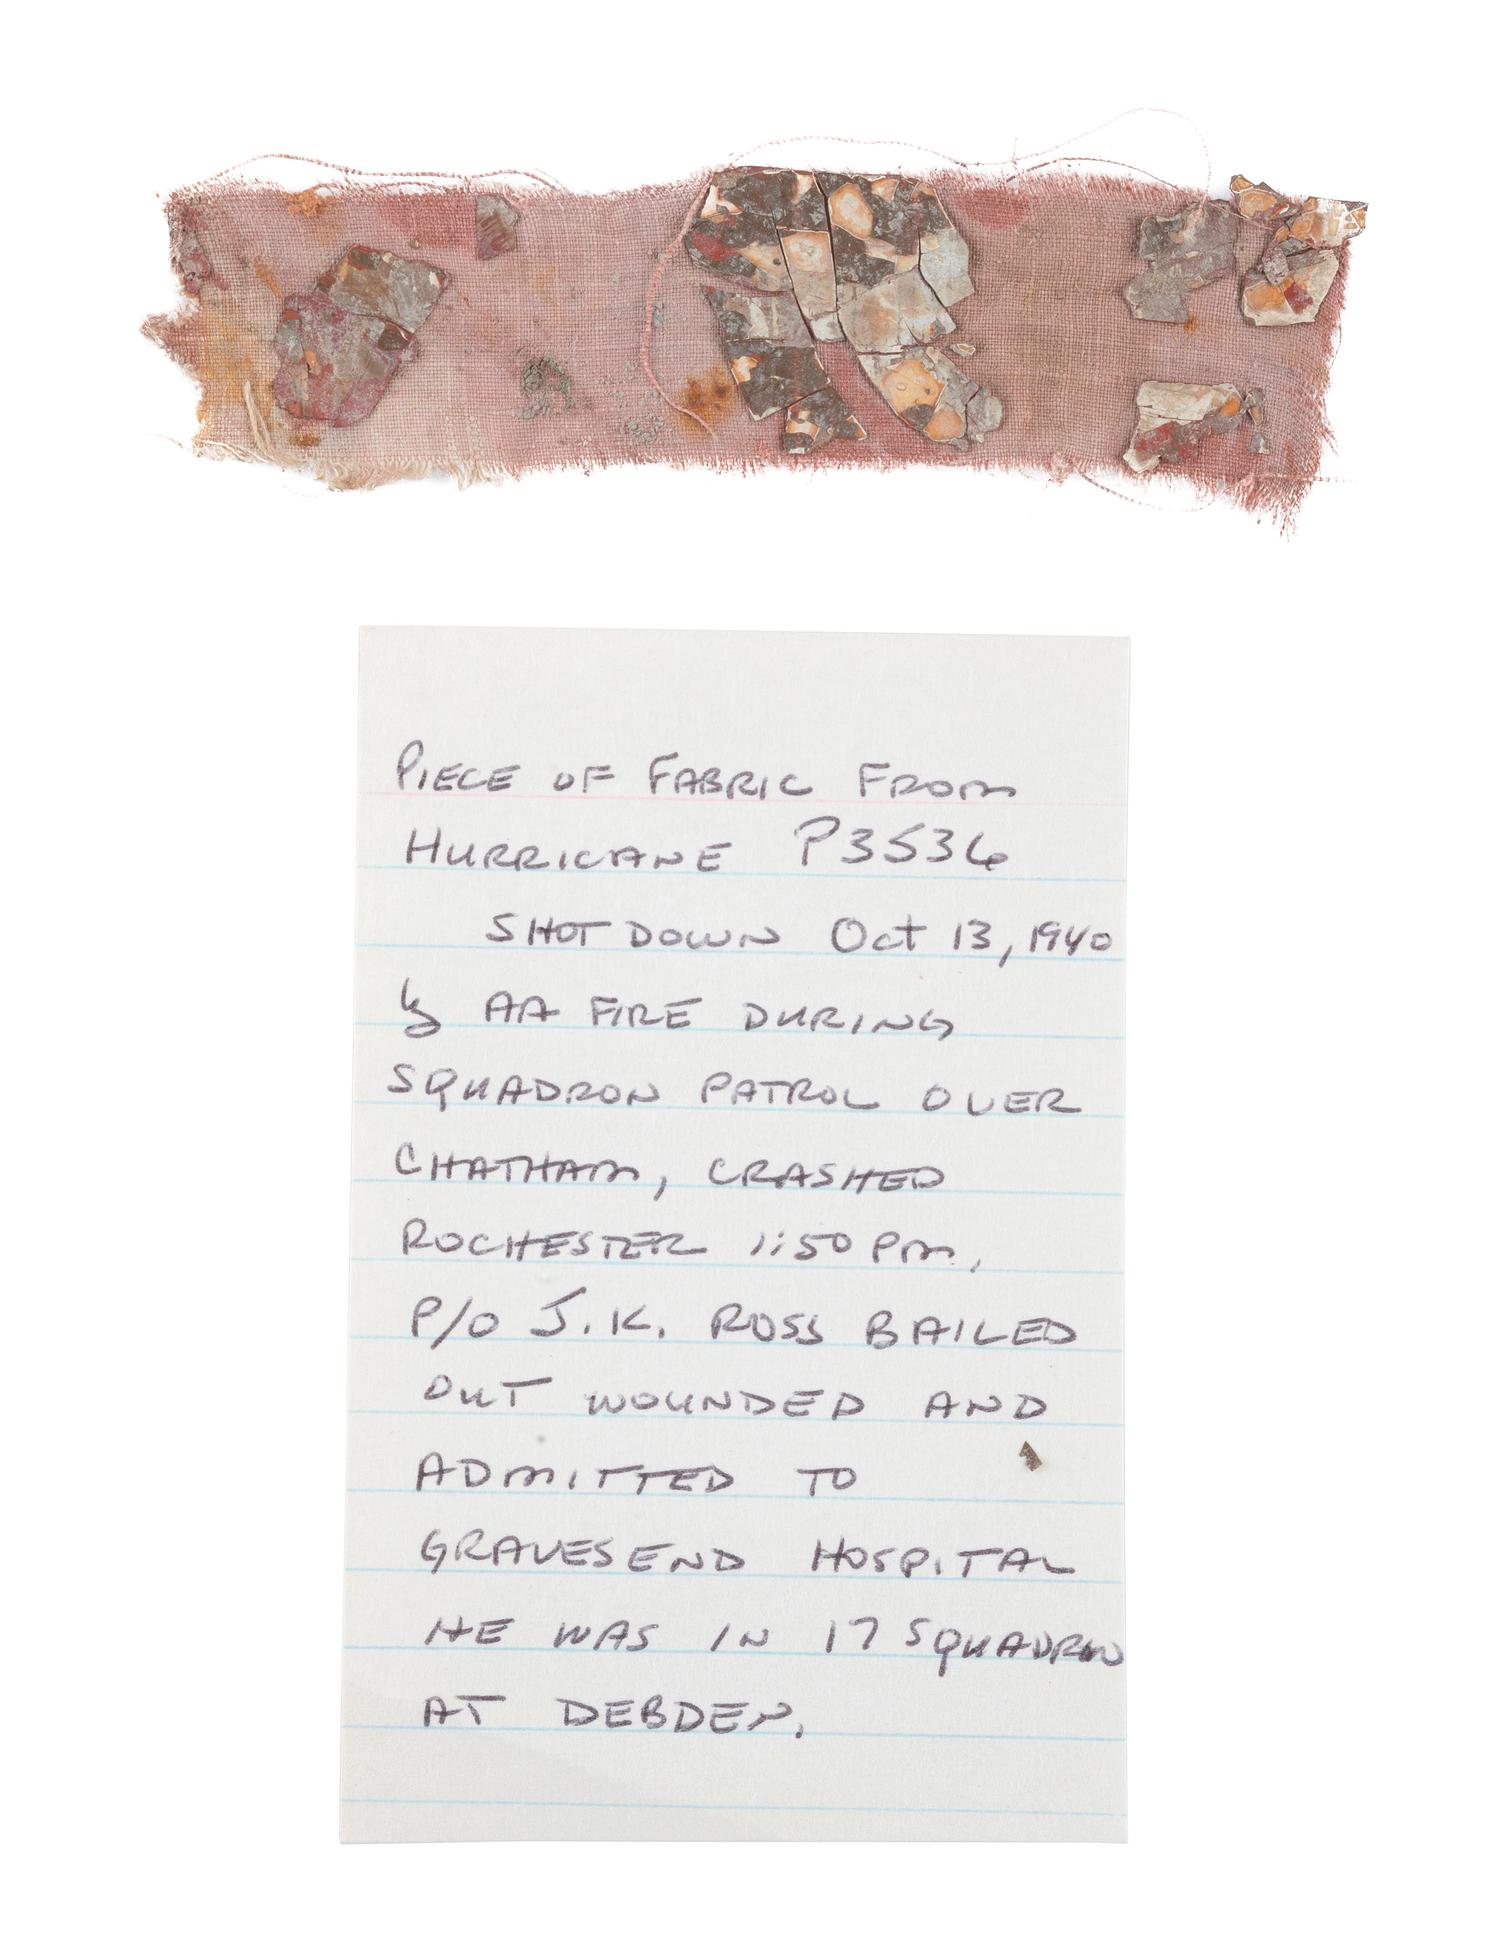 PIECE OF FABRIC FROM
HURRICANE P3536
SHOT DOWN Oct 13, 1940
by AA FIRE DURING
SQUADRON PATROL OVER
CHATHAM, CRASHED
ROCHESTER 1:50 PM,
P/O J.K. ROSS BAILED
OUT WOUNDED AND
ADMITTED TO
GRAVESEND HOSPITAL
HE WAS IN 17 SQUADRON
AT DEBDEN.